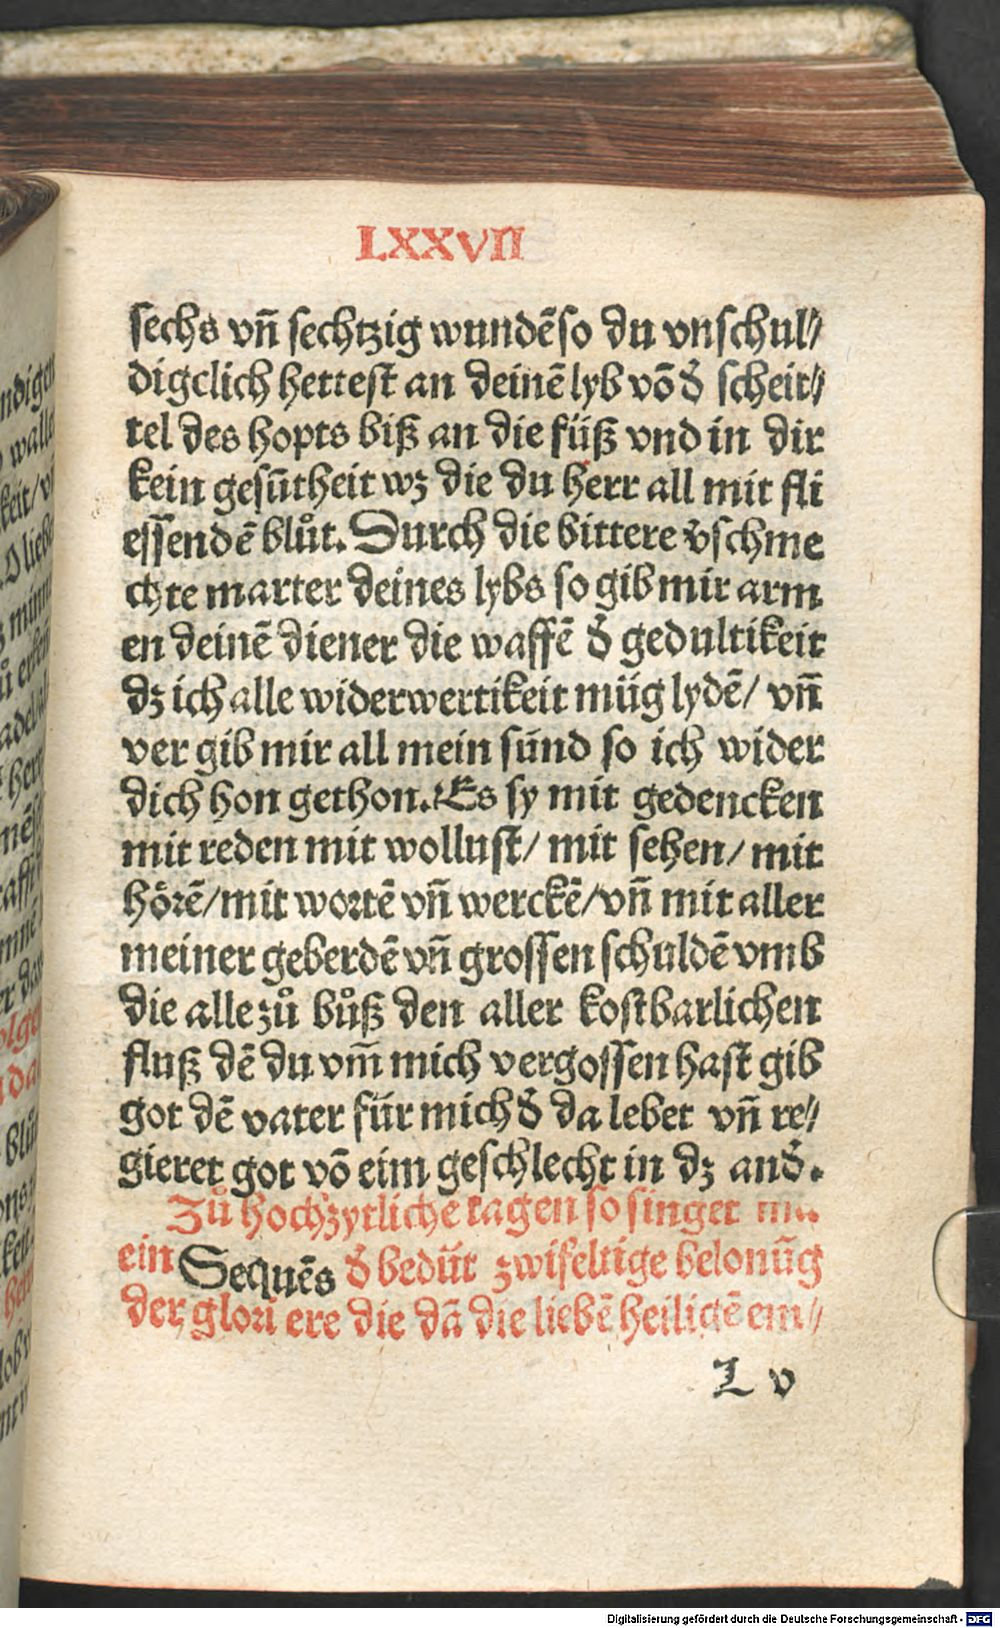 LXXVII
sechs vn̄ sechtzig wundēso du vnschul⸗
digclich hettest an deinē lyb vō d̕ scheit⸗
tel des hopts biß an die füß vnd in dir
kein gesūtheit wz die du herr all mit fli
essendē blůt. Durch die bittere v̕schme
chte marter deines lybs so gib mir arm
en deinē diener die waffē d̕ gedultikeit
dz ich alle widerwertikeit müg lydē/ vn̄
ver gib mir all mein sünd so ich wider
dich hon gethon. Es sy mit gedencken
mit reden mit wollust/ mit sehen/ mit
hörē/mit wortē vn̄ werckē/vn̄ mit aller
meiner geberdē vn̄ grossen schuldē vmb
die alle zů bůß den aller kostbarlichen
fluß dē du vm̄ mich vergossen hast gib
got dē vatter für mich d̕ da lebet vn̄ re⸗
gieret got vō eim geschlecht in dz and̕.
Zů hochzytlichē tagen so singet
ein Sequēs d̕ bedüt zwifeltige belonūg
der glori ere die dā die liebē heiligē em⸗
L v
ndigen
walle
keit/
O liebe
minn
adel
her
Digitalisierung gefördert durch die Deutsche Forschungsgemeinschaft - DFG